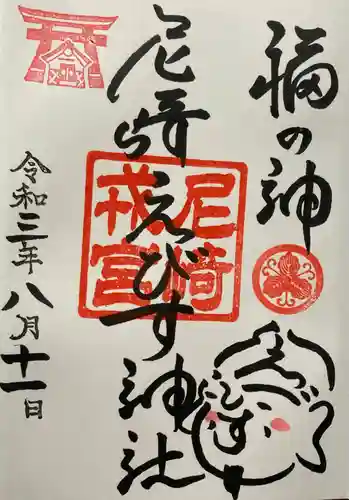 福の神
尼崎えびす神社
尼崎
戎宮
令和三年八月十一日